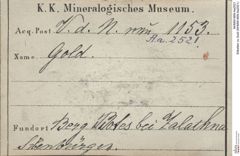 K. K. Mineralogisches Museum.
Acq. Post V. d. N. 1153.
A.a. 2521
Name Gold.
Fundort Berg Botes bei Zalathna
Siebenbürgen